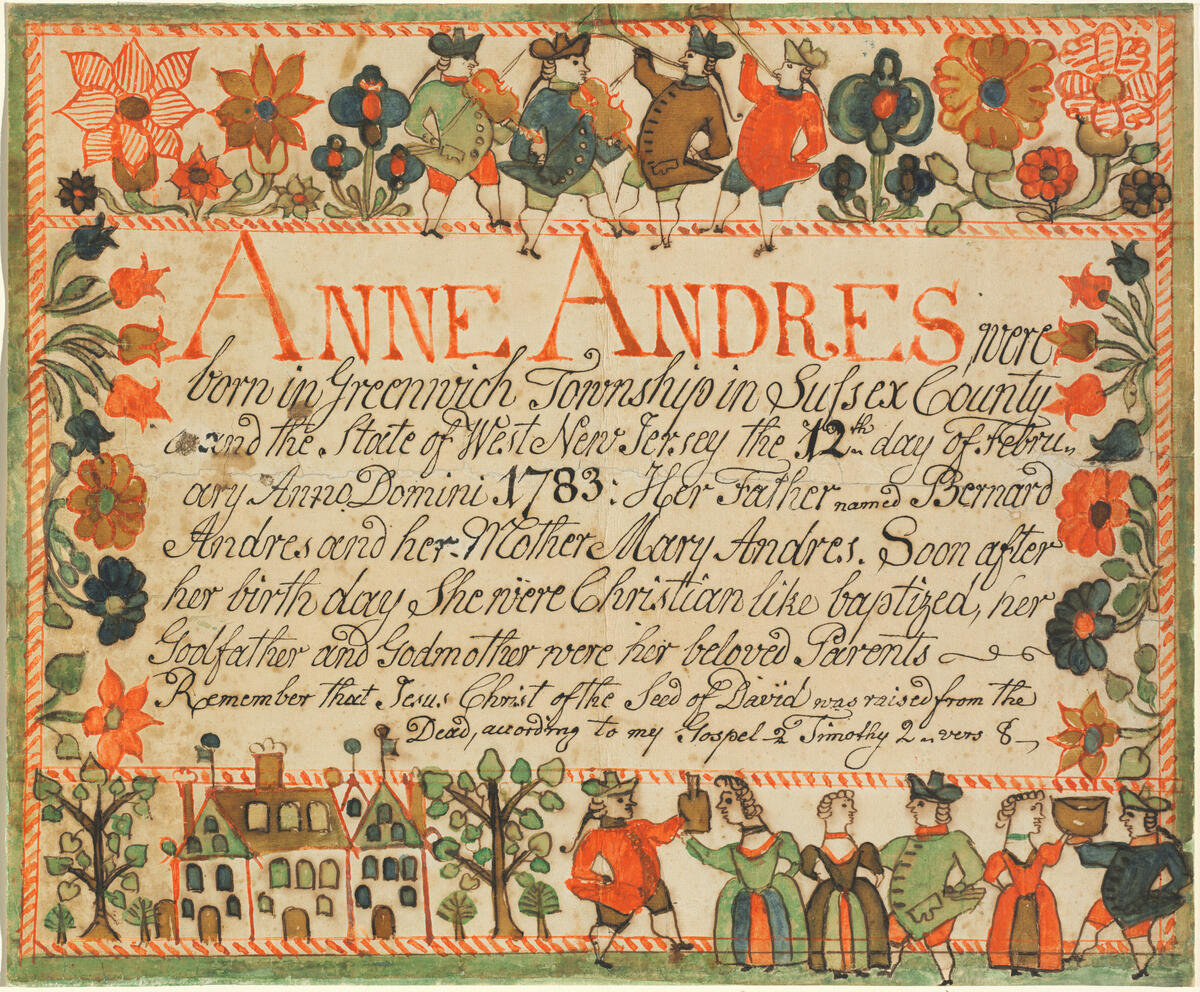 ANNE ANDRES were
born in Greenwich Township in Sussex County
and the State of West New Jersey the 12th day of Febru„
ary Anno Domini 1783: Her Father named Bernard
Andres and her Mother Mary Andres. Soon after
her birth day She were Christian like baptized, her
Godfather and Godmother were her beloved Parents
Remember that Jesus Christ of the Seed of David was raised from the
Dead, according to my Gospel 2 Timothy 2 „ vers 8